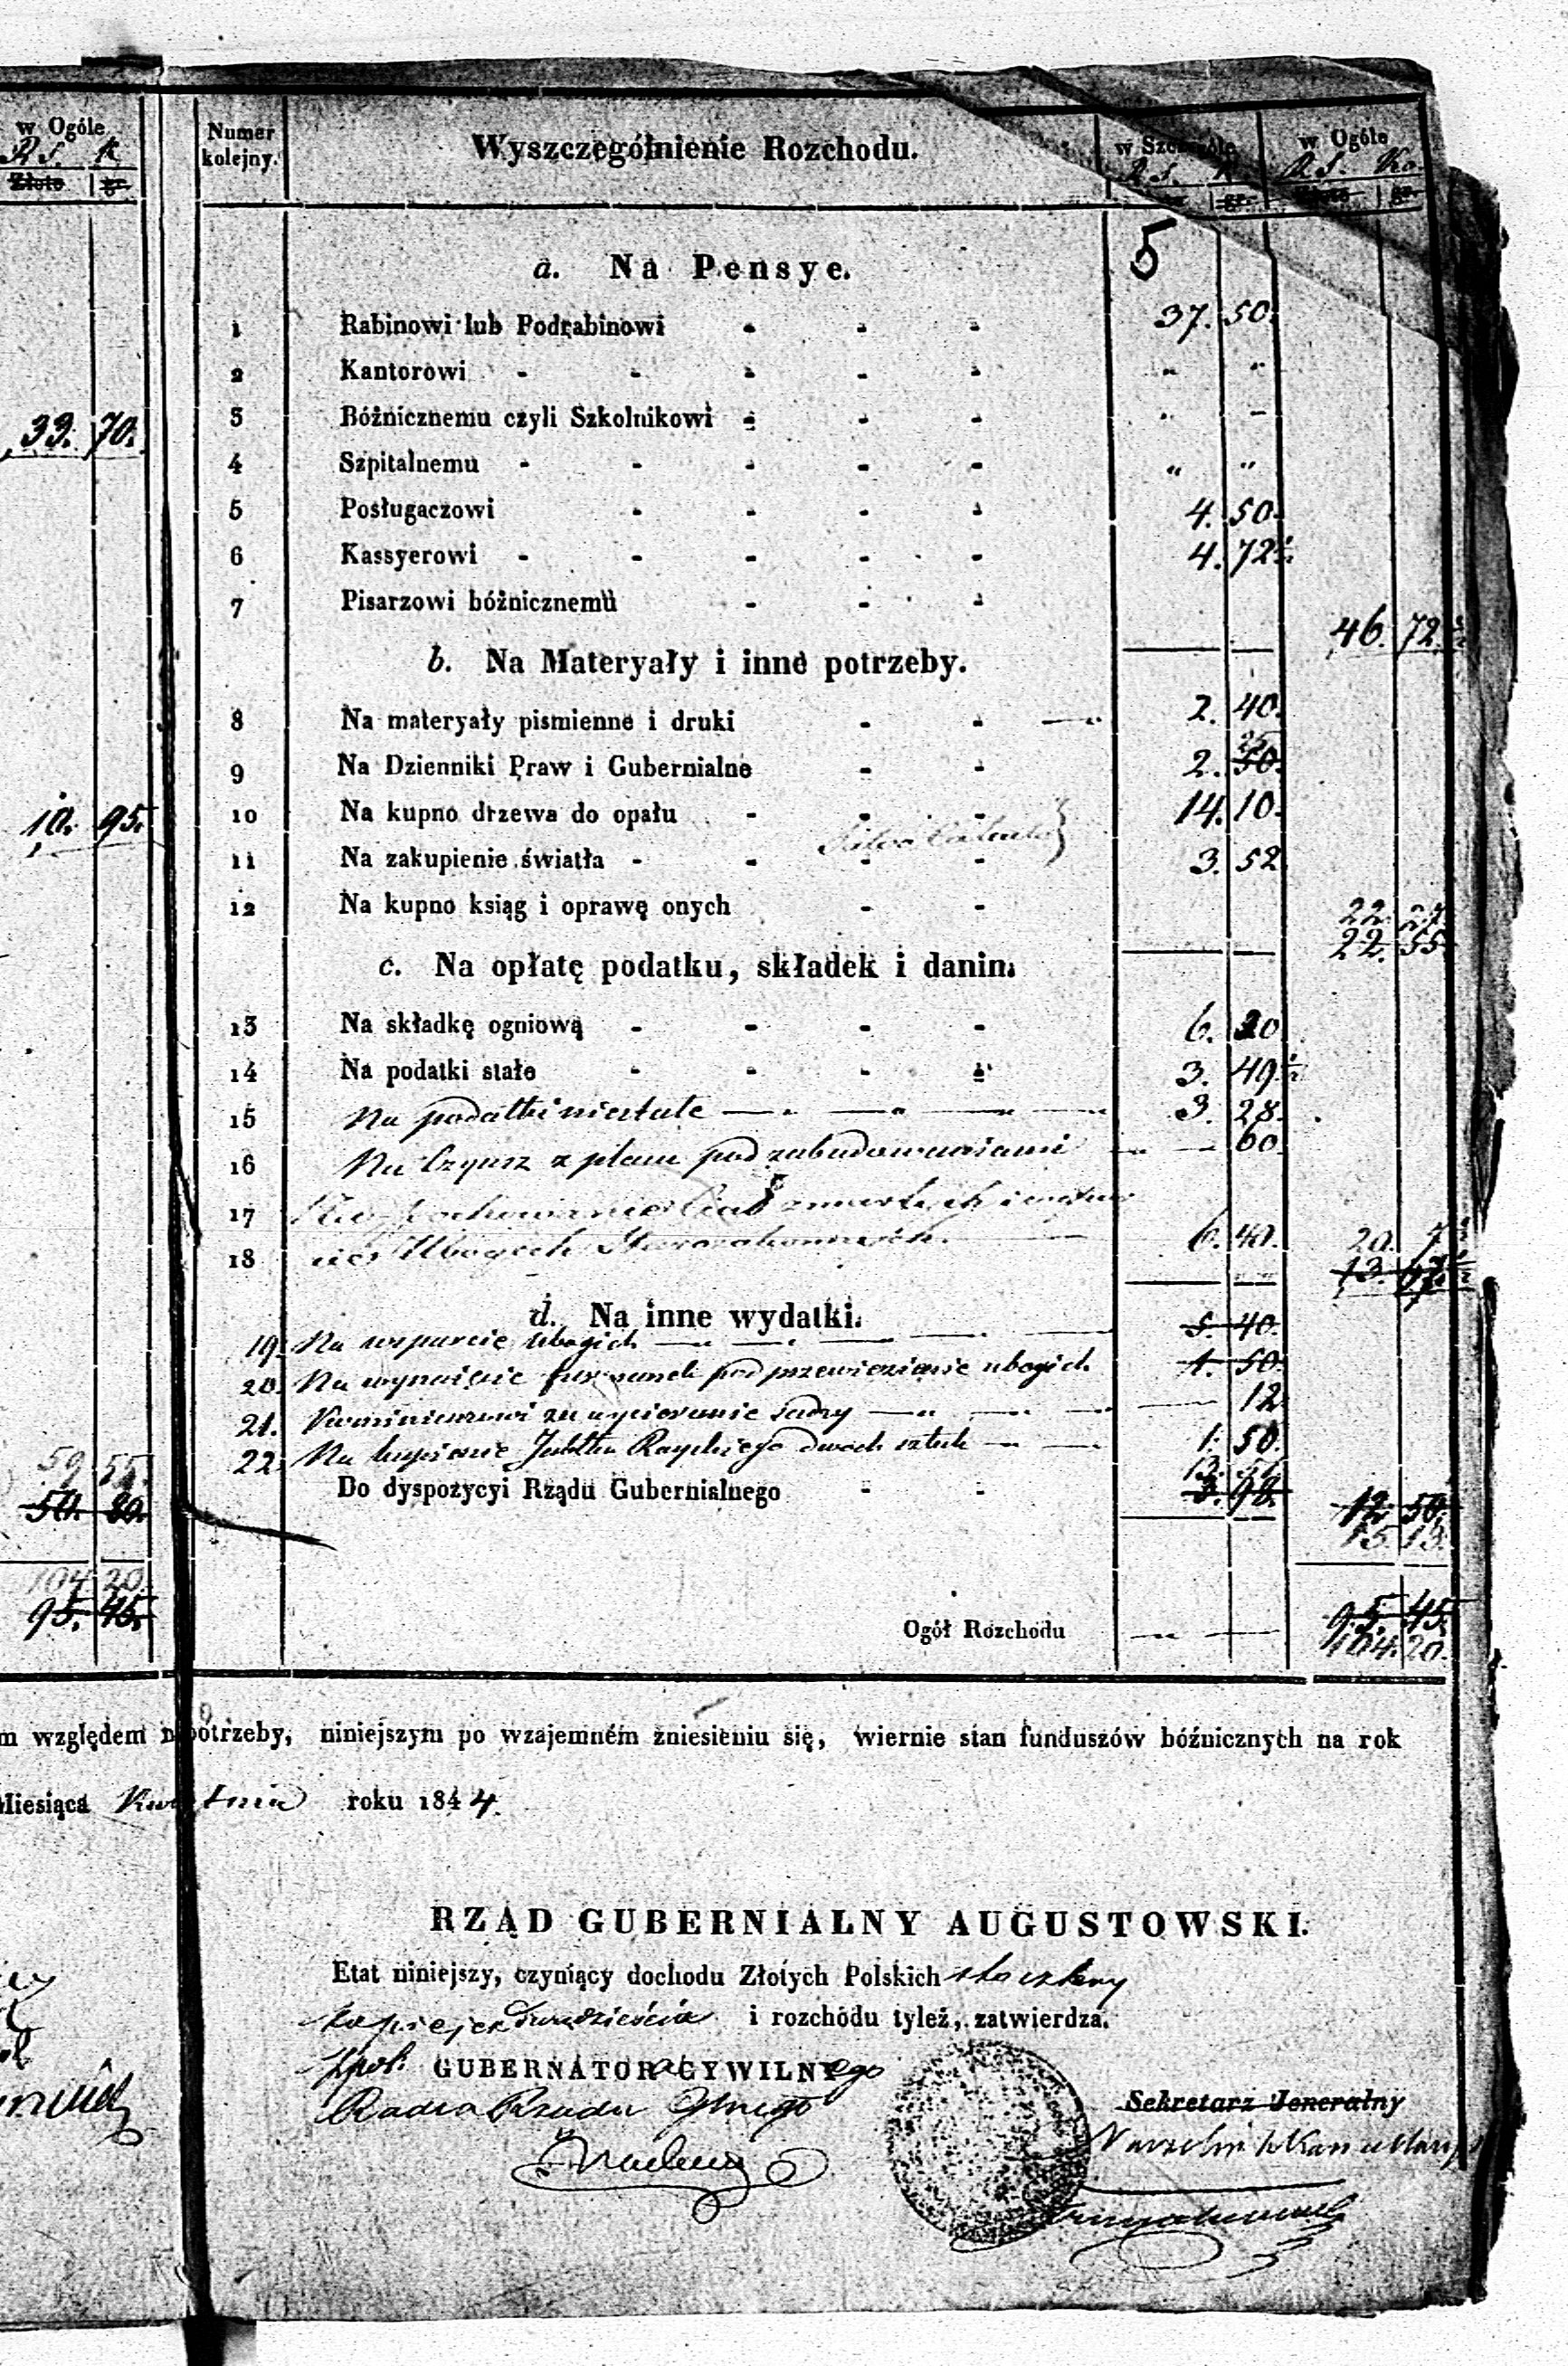 w Ogóle
Rs. K
Złote gr.
33. 70.
10. 95.
59 55.
50. 80.
104 20.
95. 45.
Numer kolejny.
Wyszczególnienie Rozchodu.
w Szczególe
w Ogóle
Rs. K
Rs. Ko.
gr.
Złote gr.
5
a. Na Pensye.
1 Rabinowi lub Podrabinowi - - - 37. 50.
2 Kantorowi - - - - - " "
3 Bóżnicznemu czyli Szkolnikowi - - - " -
4 Szpitalnemu - - - - - " "
5 Posługaczowi - - - - 4. 50.
6 Kassyerowi - - - - - 4. 72½
7 Pisarzowi bóżnicznemu - - -
46. 72.½
b. Na Materyały i inne potrzeby.
8 Na materyały pismienne i druki - - 2. 40.
25
9 Na Dzienniki Praw i Gubernialne - - 2. 50.
10 Na kupno drzewa do opału - - - 14. 10.
11 Na zakupienie światła - - - - 3. 52
12 Na kupno ksiąg i oprawę onych - -
22. 27.
22. 55
c. Na opłatę podatku, składek i danin.
13 Na składkę ogniową - - - - 6. 30
14 Na podatki stałe - - - - 3. 49½
15 Na podatki niestałe 3. 28.
16 Na Czynsz z placu pod zabudowaniami 60.
17 Na pochowanie Ciał zmarłych i
18 Ubogich Starozakonnych 6. 40.
20. 7½
13. 67½
d. Na inne wydatki.
19. Na wsparcie ubogich 5. 40.
20. Na wynajęcie furmanek pod przewiezienie ubogich 1. 50.
21. Kominiarzowi za wycieranie sadzy 12
22. Na kupienie dwóch sztuk 1. 50.
13. 51
Do dyspozycyi Rządu Gubernialnego - - 3. 98.
12 50.
15. 13.
Ogół Rozchodu 95. 45.
104. 20.
m względem potrzeby, niniejszym po wzajemném zniesieniu się, wiernie stan funduszów bóżnicznych na rok
Miesiąca Kwietnia roku 1844.
RZĄD GUBERNIALNY AUGUSTOWSKI.
Etat niniejszy, czyniący dochodu Złotych Polskich sto cztery
kopiejek dwadzieścia i rozchodu tyleż, zatwierdza.
GUBERNATORA CYWILNEgo
Radca Rządu
Sekretarz Jeneralny
Naczelnik Kancellaryi